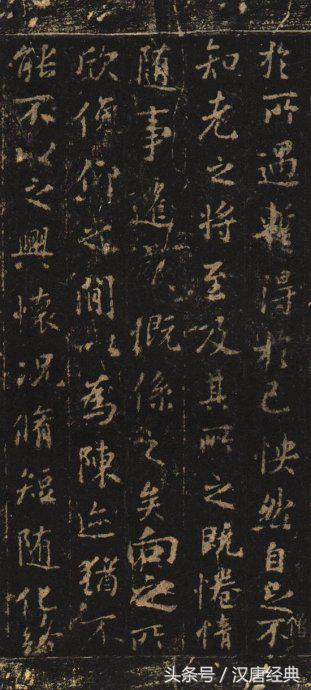 於所遇暫得於己怏然自足不
僧
知老之將至及其所之既惓情
随事遷感慨係之矣向之所
欣俛仰之間以為陳迹猶不
能不以之興懷況脩短随化終
头条号 / 汉唐经典